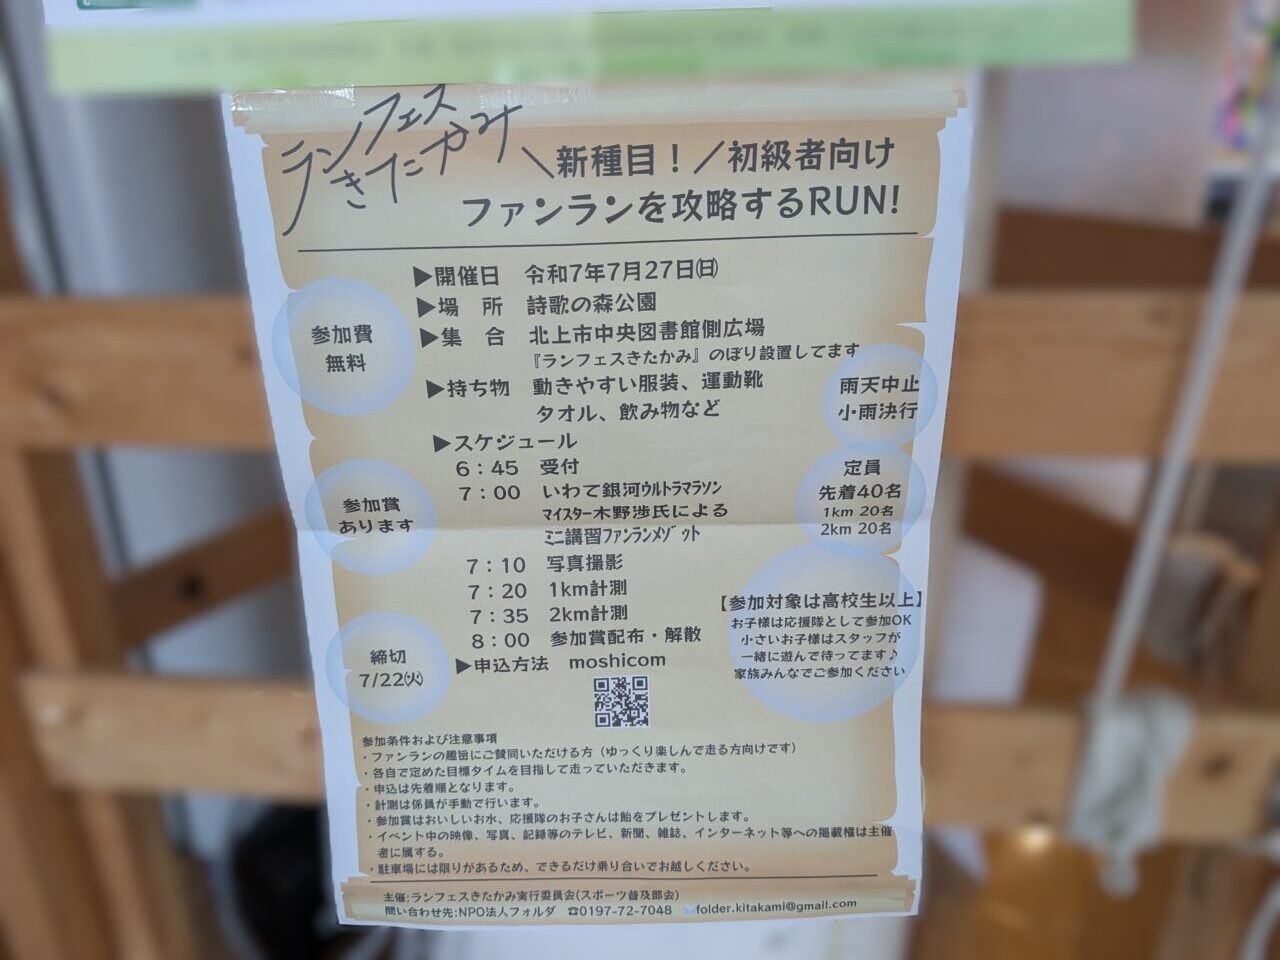 ランフェス
きたかみ
＼新種目！／初級者向け
ファンランを攻略するRUN!
▶開催日 令和7年7月27日㈰
▶場 所 詩歌の森公園
▶集 合 北上市中央図書館側広場
『ランフェスきたかみ』のぼり設置してます
▶持ち物 動きやすい服装、運動靴
タオル、飲み物など
▶スケジュール
6：45 受付
7：00 いわて銀河ｳﾙﾄﾗﾏﾗｿﾝ
ﾏｲｽﾀｰ木野渉氏による
ﾐﾆ講習ﾌｧﾝﾗﾝﾒｿﾞｯﾄ
7：10 写真撮影
7：20 1km計測
7：35 2km計測
8：00 参加賞配布・解散
▶申込方法 moshicom
参加費
無料
参加賞
あります
締切
7/22㈫
雨天中止
小雨決行
定員
先着40名
1km 20名
2km 20名
【参加対象は高校生以上】
お子様は応援隊として参加OK
小さいお子様はスタッフが
一緒に遊んで待ってます♪
家族みんなでご参加ください
参加条件および注意事項
・ファンランの趣旨にご賛同いただける方（ゆっくり楽しんで走る方向けです）
・各自で定めた目標タイムを目指して走っていただきます。
・申込は先着順となります。
・計測は係員が手動で行います。
・参加賞はおいしいお水、応援隊のお子さんは飴をプレゼントします。
・イベント中の映像、写真、記録等のテレビ、新聞、雑誌、インターネット等への掲載権は主催
者に属する。
・駐車場には限りがあるため、できるだけ乗り合いでお越しください。
主催:ランフェスきたかみ実行委員会(スポーツ普及部会)
問い合わせ先:NPO法人フォルダ ☎0197-72-7048 ✉folder.kitakami@gmail.com